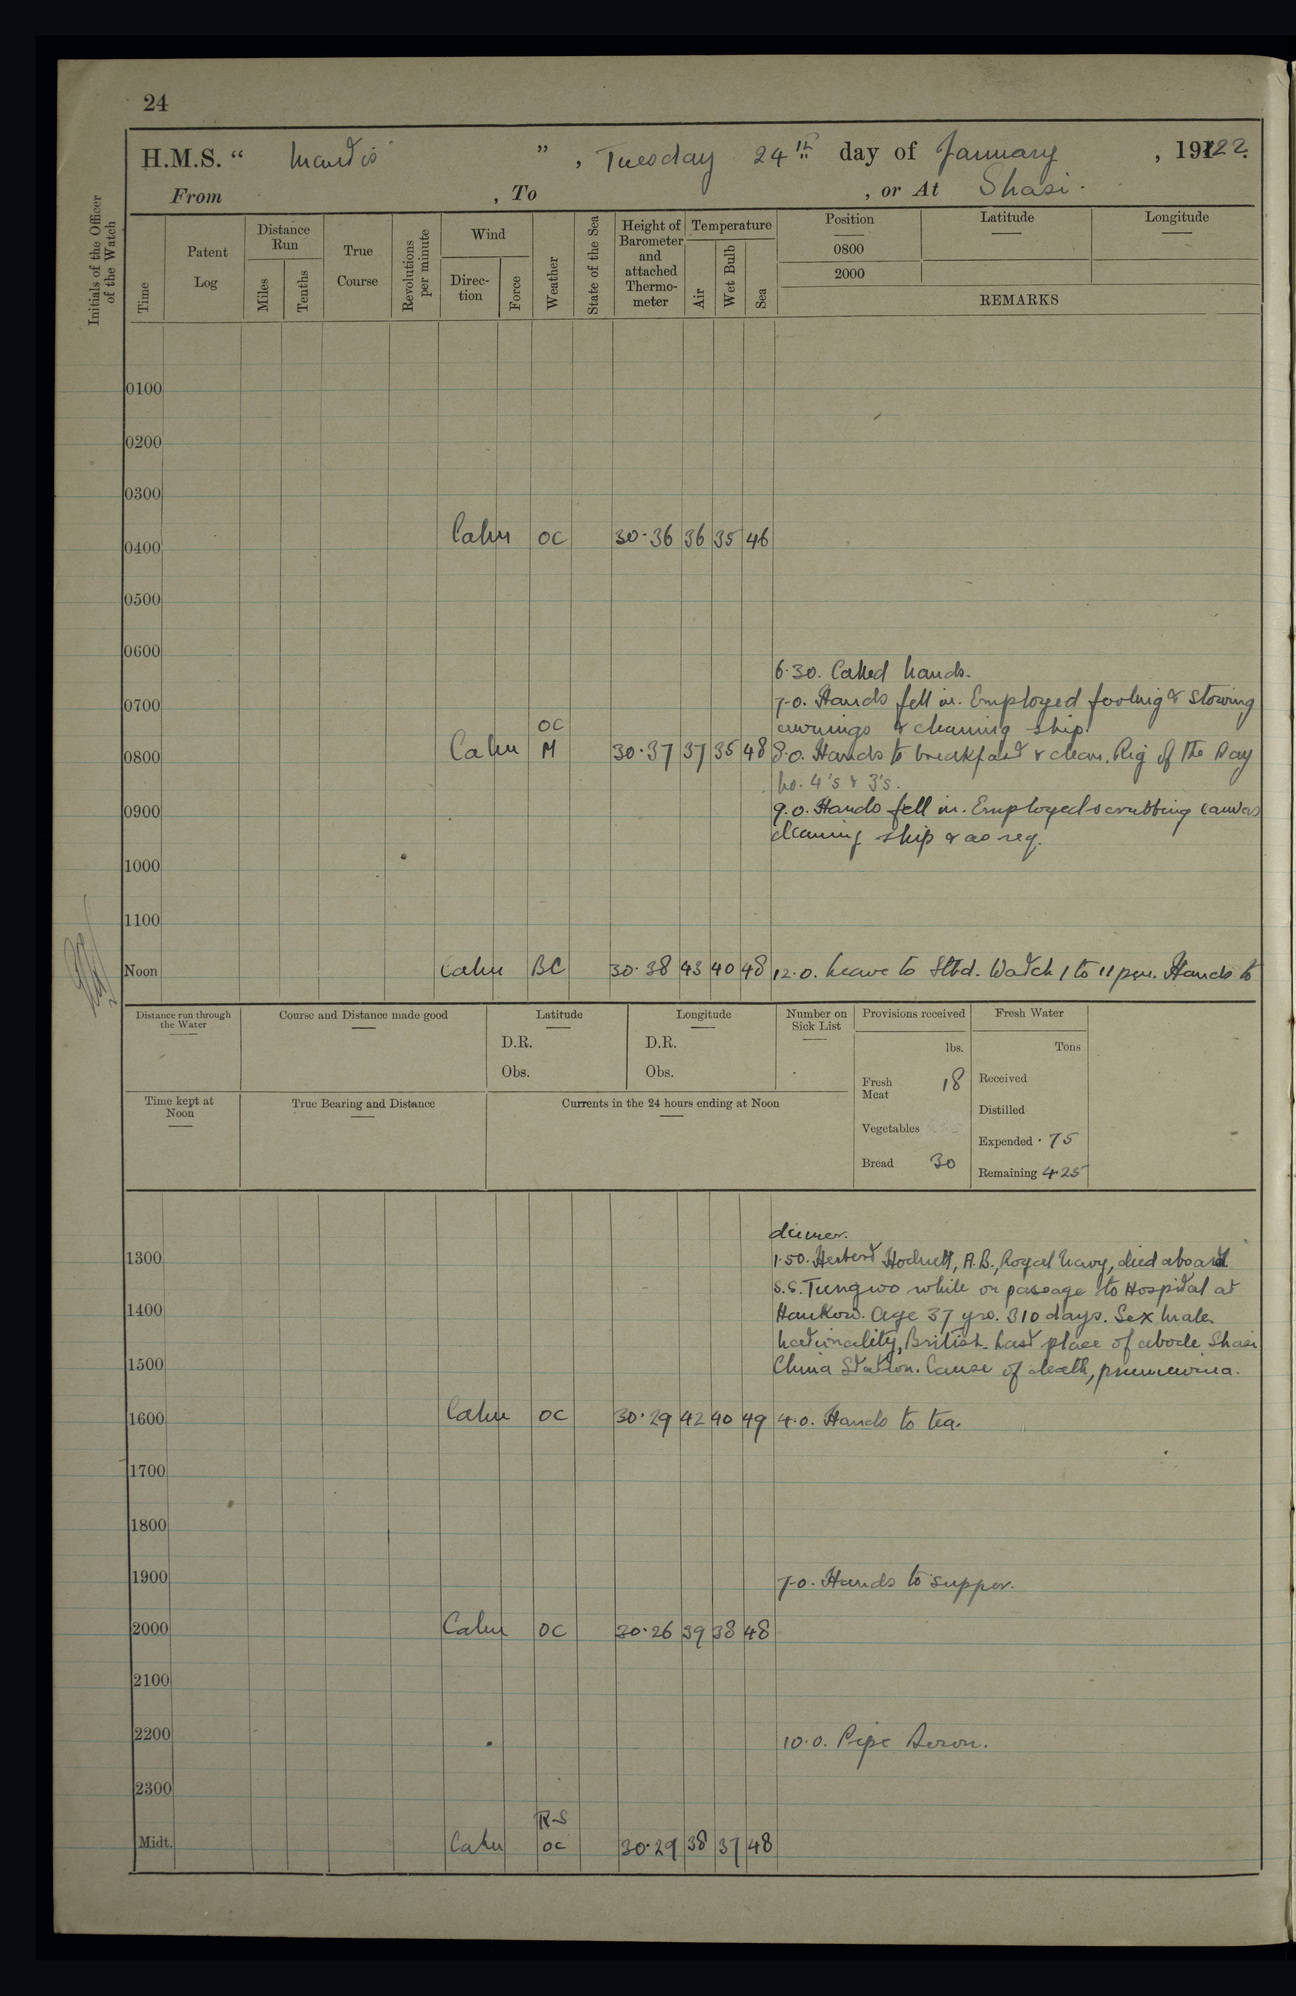 24
H.M.S. “ Mantis ” , Tuesday 24th day of January , 1922.
From , To , or At Shasi.
Initials of the Officer of the Watch
Time
Patent Log
Distance Run
Miles
Tenths
True Course
Revolutions per minute
Wind
Direc-tion
Force
Weather
State of the Sea
Height of Barometer and attached Thermo-meter
Temperature
Air
Wet Bulb
Sea
Position
Latitude
Longitude
0800
2000
REMARKS
0100
0200
0300
0400 Calm OC 30.36 36 35 46
0500
0600
6.30. Called hands.
0700 7-0. Hands fell in. Employed furling & stowing
OC awnings & cleaning ship.
0800 Calm M 30.37 37 35 48 8.0. Hands to breakfast & clean. Rig of the Day
No. 4's & 3's.
0900 9.0. Hands fell in. Employed scrubbing canvas
cleaning ship & as req.
1000
1100
Noon Calm BC 30.38 43 40 48 12.0. Leave to Stbd. Watch 1 to 11 pm. Hands to
Distance run through the Water
Course and Distance made good
Latitude
D.R.
Obs.
Longitude
D.R.
Obs.
Number on Sick List
Provisions received
lbs.
Fresh Meat 18
Vegetables
Bread 30
Fresh Water
Tons
Received
Distilled
Expended .75
Remaining 4.25
Time kept at Noon
True Bearing and Distance
Currents in the 24 hours ending at Noon
dinner.
1300 1.50. Herbert Hodnett, A.B., Royal Navy, died aboard
S.S. Tungwo while on passage to Hospital at
1400 Hankow. Age 37 yrs. 310 days. Sex Male.
Nationality, British. Last place of abode Shasi
1500 China Station. Cause of death, pneumonia.
1600 Calm OC 30.29 42 40 49 4.0. Hands to tea.
1700
1800
1900 7-0. Hands to supper.
2000 Calm OC 30.26 39 38 48
2100
2200 10.0. Pipe Down.
2300
R-S
Midt. Calm OC 30.29 38 37 48